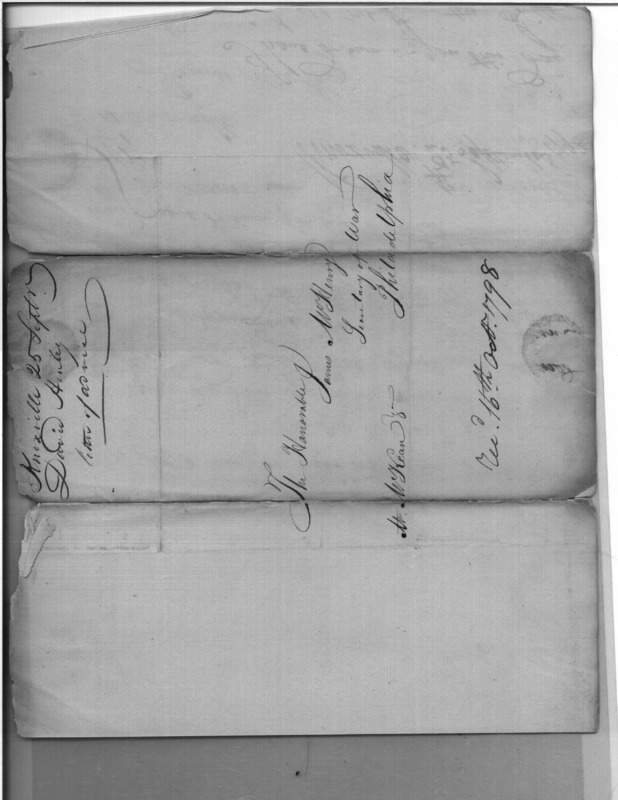 Knoxville 25 Septr.
David Henley
letter of advice
The Honorable
James McHenry
Secretary of War
Philadelphia
Mr. McKean
Recd. 16th Octr. 1798